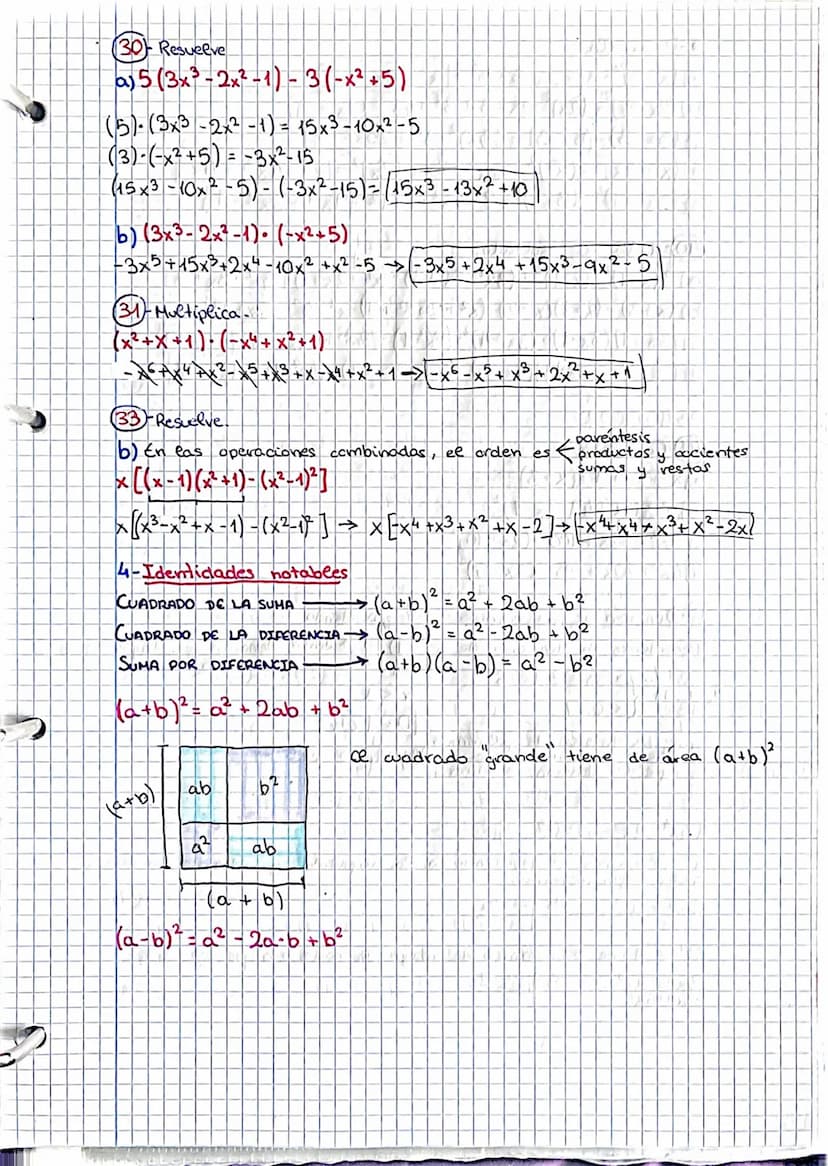 30- Resuelve
a) 5(3x³-2x²-1) - 3(-x²+5)
(5)·(3x³-2x²-1) = 15x³-10x²-5
(3)·(-x²+5) = -3x²-15
(15x³-10x²-5) - (-3x²-15) = 15x³-13x²+10
b) (3x³-2x²-1)·(-x²+5)
-3x⁵+15x³+2x⁴-10x²+x²-5 → -3x⁵+2x⁴+15x³-9x²-5
31- Multiplica.
(x²+x+1)·(-x⁴+x²+1)
-x⁶+x⁴+x²-x⁵+x³+x-x⁴+x²+1 → -x⁶-x⁵+x³+2x²+x+1
33- Resuelve.
b) En las operaciones combinadas, el orden es < paréntesis
productos y cocientes
sumas y restas
x[(x-1)(x²+1)-(x²-1)²]
x[(x³-x²+x-1)-(x²-1)²] → x[-x⁴+x³+x²+x-2] → -x⁴+x⁴+x³+x²-2x
4-Identidades notables
CUADRADO DE LA SUMA → (a+b)² = a² + 2ab + b²
CUADRADO DE LA DIFERENCIA → (a-b)² = a² - 2ab + b²
SUMA POR DIFERENCIA → (a+b)(a-b) = a² - b²
(a+b)² = a² + 2ab + b²
el cuadrado "grande" tiene de área (a+b)²
(a+b)
ab b²
a² ab
(a + b)
(a-b)² = a² - 2a·b + b²